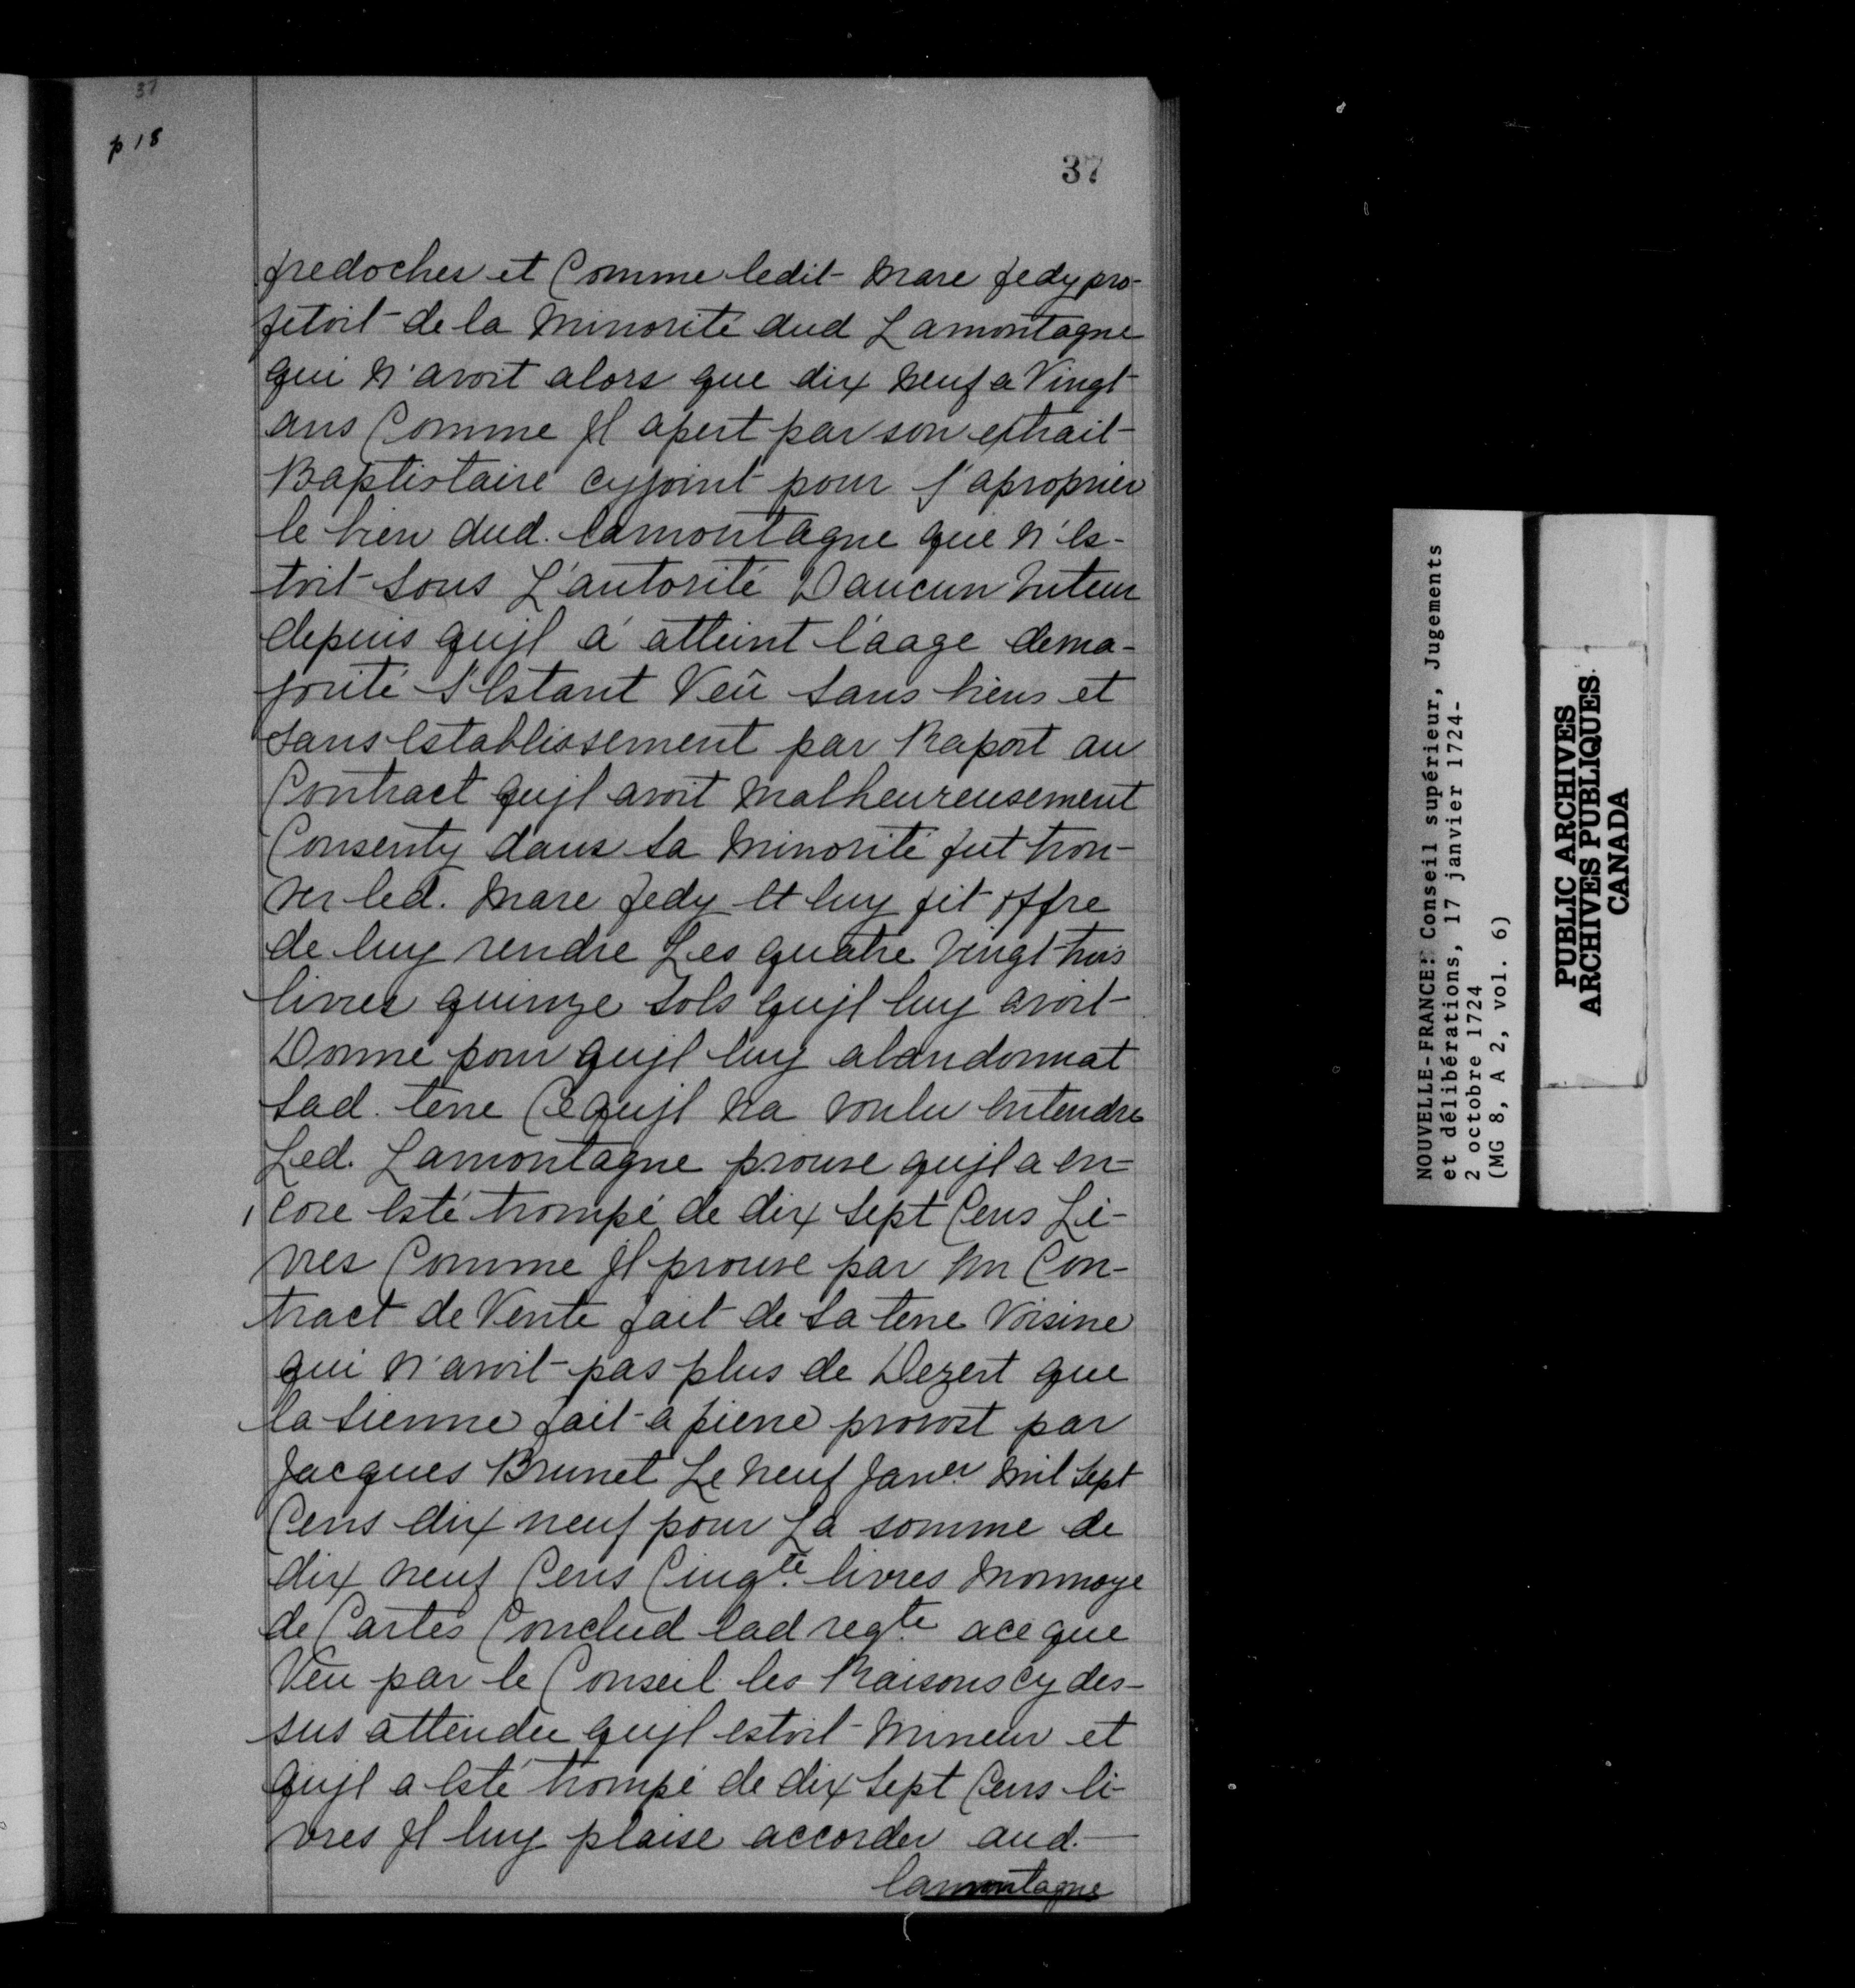 37
p 18
37
fredoches et Comme ledit Marc Jedy pro-
fitoit de la Minorité dud Lamontagne
qui N'avoit alors que dix Neuf a Vingt
ans Comme Jl apert par son extrait
Baptistaire cyjoint pour s'aproprier
le bien dud. lamontagne que N'es-
toit sous L'autorité Daucun tuteur
depuis qujl a atteint l'aage dema-
jorité S'Estant Veû sans biens et
sans Establissement par Raport au
Contract qujl avoit Malheureusement
Consenty dans sa Minorité fut trou-
ver led. Marc Jedy Et luy fit offre
de luy rendre Les quatre Vingt trois
livres quinze sols qujl luy avoit
Donné pour qujl luy abandonnat
sad. terre Ce qujl Na voulu Entendre
Led. Lamontagne prouve qujl a en-
core Esté trompé de dix Sept Cens Li-
vres Comme Jl prouve par Un Con-
tract de Vente fait de sa terre Voisine
qui N'avoit pas plus de Dezert que
la sienne fait a pierre provost par
Jacques Brunet Le Neuf Janer Mil Sept
Cens dix neuf pour La somme de
dix Neuf Cens Cinqte livres Monnoye
de Cartes Conclud lad reqte ace que
Veu par le Conseil les Raisons cy des-
sus attendu qujl estoit Mineur et
qujl a Esté trompé de dix Sept Cens li-
vres Jl luy plaise accorder aud.
lamontagne
NOUVELLE-FRANCE: Conseil supérieur, Jugements
et délibérations, 17 janvier 1724-
2 octobre 1724
(MG 8, A 2, vol. 6)
PUBLIC ARCHIVES
ARCHIVES PUBLIQUES
CANADA